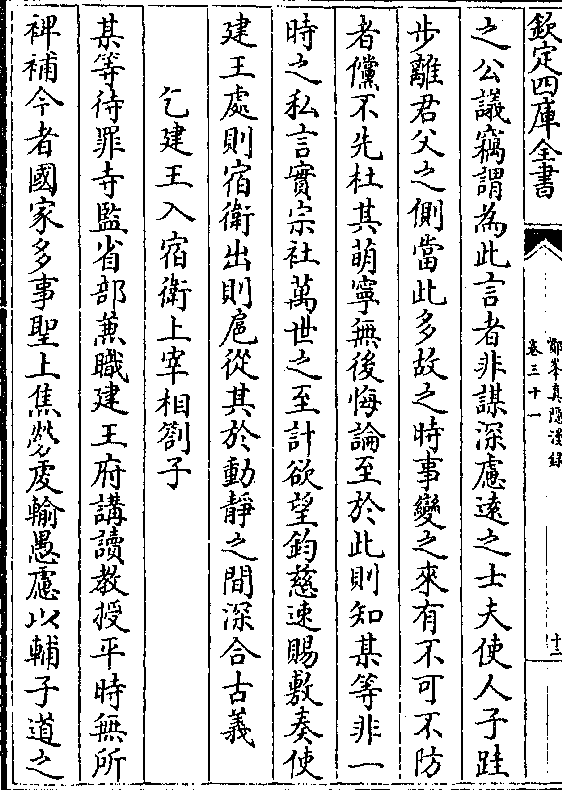 欽定四庫全書
鄮峯真隱漫錄
卷三十一
十二
之公議竊謂為此言者非謀深慮遠之士夫使人子跬
步離君父之側當此多故之時事變之來有不可不防
者儻不先杜其萌寧無後悔論至於此則知某等非一
時之私言實宗社萬世之至計欲望鈞慈速賜敷奏使
建王處則宿衛出則扈從其於動靜之間深合古義
乞建王入宿衛上宰相劄子
某等待罪寺監省部兼職建王府講讀教授平時無所
裨補今者國家多事聖上焦勞庋輸愚慮以輔子道之